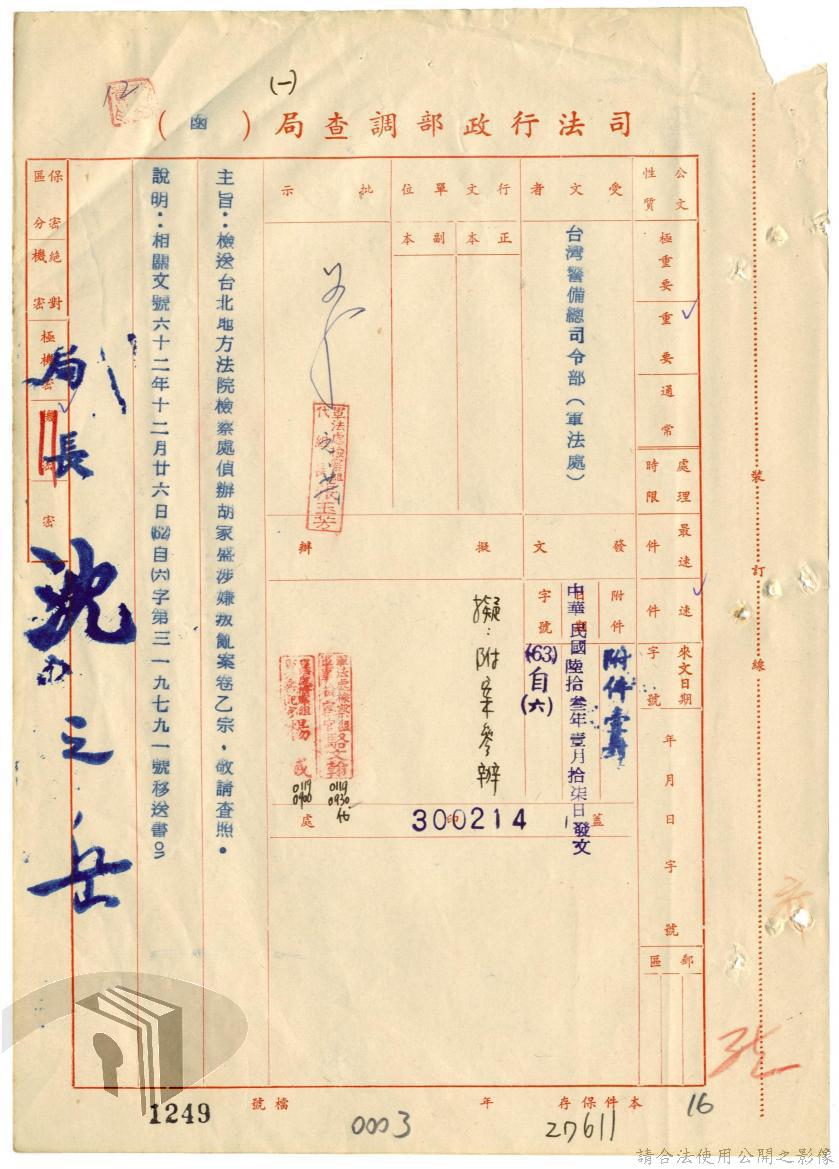 (一)
12
司法行政部調查局(函)
公文性質
極重要
重要
通常
處理時限
最速件
速件
來文日期字號
年月日
字號
郵區
受文者
台灣警備總司令部(軍法處)
行文單位
正本
副本
批示
軍法處檢察組
發文
附件
附件壹
日期
中華民國陸拾叁年壹月拾柒日發文
字號
(63)自(六)
300214
蓋印
擬辦
擬:附案參辦
軍法處檢察組
軍事檢察官駱文翰
0119
0930
楊
0119
0900
處
主旨:檢送台北地方法院檢察處偵辦胡家盛涉嫌叛亂案卷乙宗,敬請查照。
說明:相關文號六十二年十二月廿六日(62)自(六)字第三一九七九一號移送書。
保密區分
絕對機密
極機密
機密
密
局長沈之岳
裝訂線
16
本件保存
年
檔號
27611
0003
1249
請合法使用公開之影像